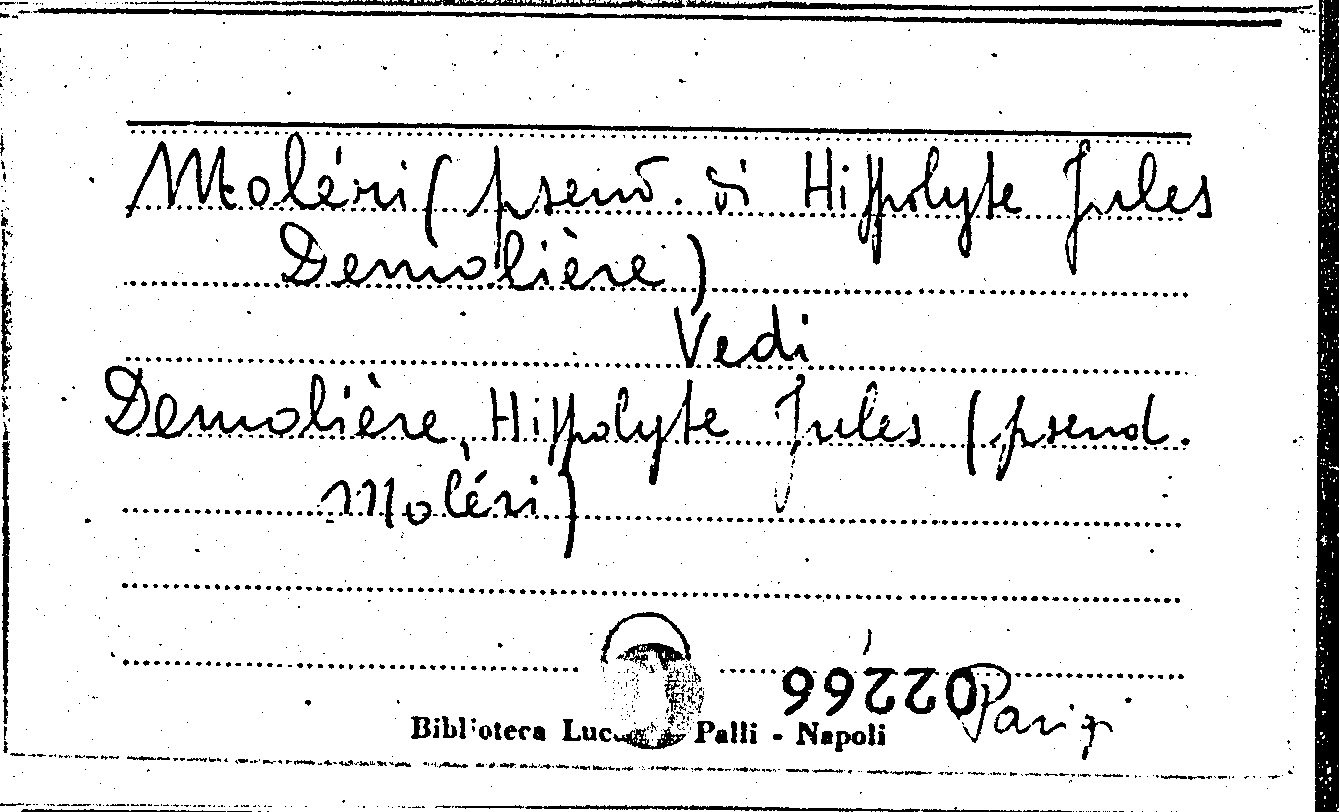 Moléri (pseud. di Hippolyte Jules
Demolière)
Vedi
Demolière, Hippolyte Jules (pseud.
Moléri)
02266
Parigi
Biblioteca Palli - Napoli